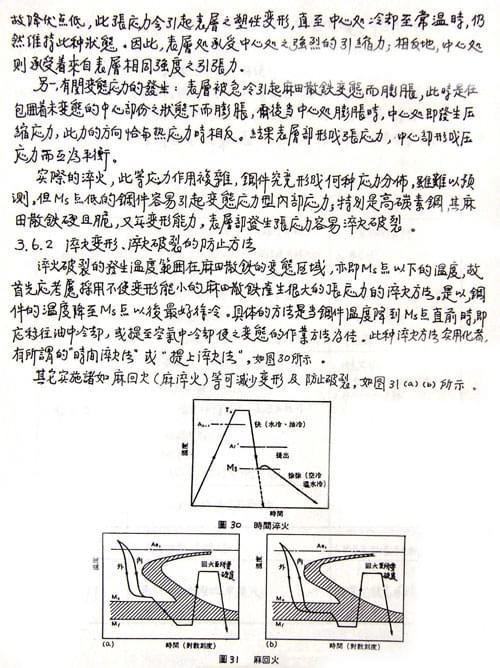 故降伏点低，此張应力会引起表層之塑性变形，直至中心処冷却至常温時，仍
然維持此种狀態。因此，表層処承受中心処之强烈的引縮力；相反地，中心処
則承受着來自表層相同强度之引張力。
另一有関变態应力的發生：表層被急冷引起麻田散鉄变態而膨脹，此時是在
包囲着未变態的中心部份之狀態下而膨脹，爾後当中心処膨脹時，中心処即發生圧
縮应力，此力的方向恰与热应力時相反。結果表層部形成張应力，中心部形成压
应力而互为平衡。
实際的淬火，此等应力作用複雜，鋼件究竟形成何种应力分佈，雖難以預
測，但Ms点低的鋼件容易引起变態应力型內部应力；特别是高碳素鋼，其麻
田散鉄硬且脆，又無变形能力，表層部發生張应力容易淬火破裂。
3.6.2 淬火变形、淬火破裂的防止方法
淬火破裂的發生温度範囲在麻田散鉄的变態区域，亦即Ms点以下的温度，故
首先应考慮採用不使变形能小的麻田散鉄產生很大的張应力的淬火方法。是以，鋼
件的温度降至Ms点以後最好徐冷。具体的方法是当鋼件温度降到Ms点直前時，即
応移往油中冷却，或提至空氣中冷却使之变態的作業方法为佳。此种淬火方法实用化者，
有所謂的“時间淬火法”或“提上淬火法”，如图30所示。
其它实施諸如麻回火（麻淬火）等可減少变形及防止破裂，如图31(a)(b)所示。
温度
快（水冷、油冷）
提出
Ms
徐徐（空冷
温水冷）
時間
圖30 時間淬火
温度
外
内
Ms
Mf
回火至所需
硬度
(a)
時間（對數刻度）
温度
外
内
Ms
Mf
回火至所需
硬度
(b)
時間（對數刻度）
圖31 麻回火